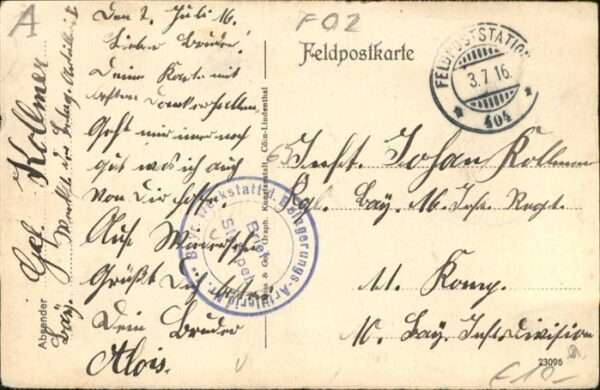 A
F02
Den 2. Juli 16.
Lieber Bruder!
Deine Karte mit
Dank erhalten
Geht mir immer noch
gut was ich auch
von Dir hoffe.
Auf Wiedersehn
Grüßt Dich
Dein Bruder
Alois.
Absender
Gef. Kollmer
Bay.
Feldpostkarte
FELDPOSTSTATION
3.7.16.
* 404 *
Inft. Johan Kollmer
Kgl. Bay. 16. Inf. Regt.
11. Komp.
10. Bay. Inf. Division
Werkstatt d. Belagerungs-Artillerie
Brief
Stempel
& Co., Graph. Kunstanstalt, Cöln-Lindenthal
23095
€10-